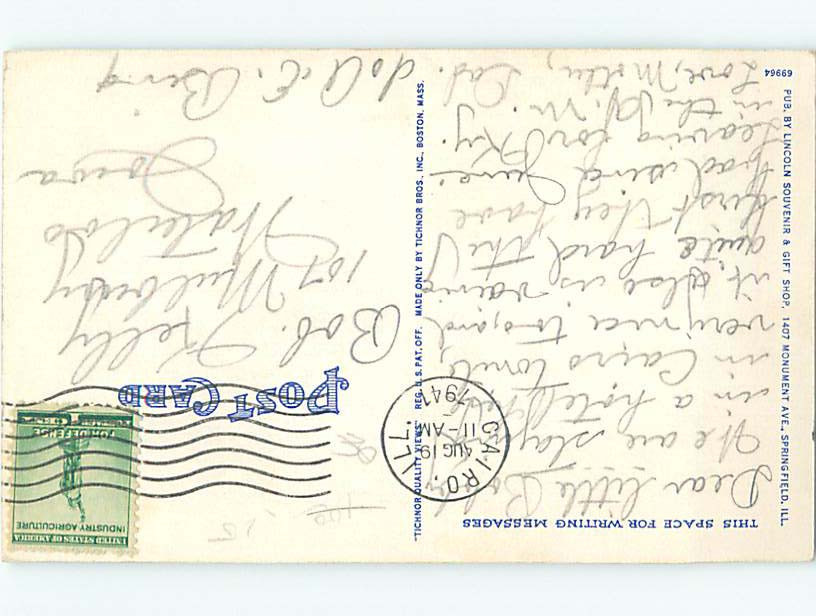 THIS SPACE FOR WRITING MESSAGES
Dear little Bobby
We are staying
in a hotel here
in Cairo tonite,
very nice too, and
it also is raining
quite hard the
first they have
had since June.
Leaving for Ky.
in the A.M.
Love, Mother, Dad.
69964
PUB. BY LINCOLN SOUVENIR & GIFT SHOP, 1407 MONUMENT AVE., SPRINGFIELD, ILL.
"TICHNOR QUALITY VIEWS" REG. U.S. PAT. OFF. MADE ONLY BY TICHNOR BROS., INC., BOSTON, MASS.
CAIRO, ILL.
AUG 19
11-AM
1941
POST CARD
UNITED STATES OF AMERICA
INDUSTRY AGRICULTURE
FOR DEFENSE
1¢
Bob. Kelly
107 Mulberry
Waterloo
Iowa